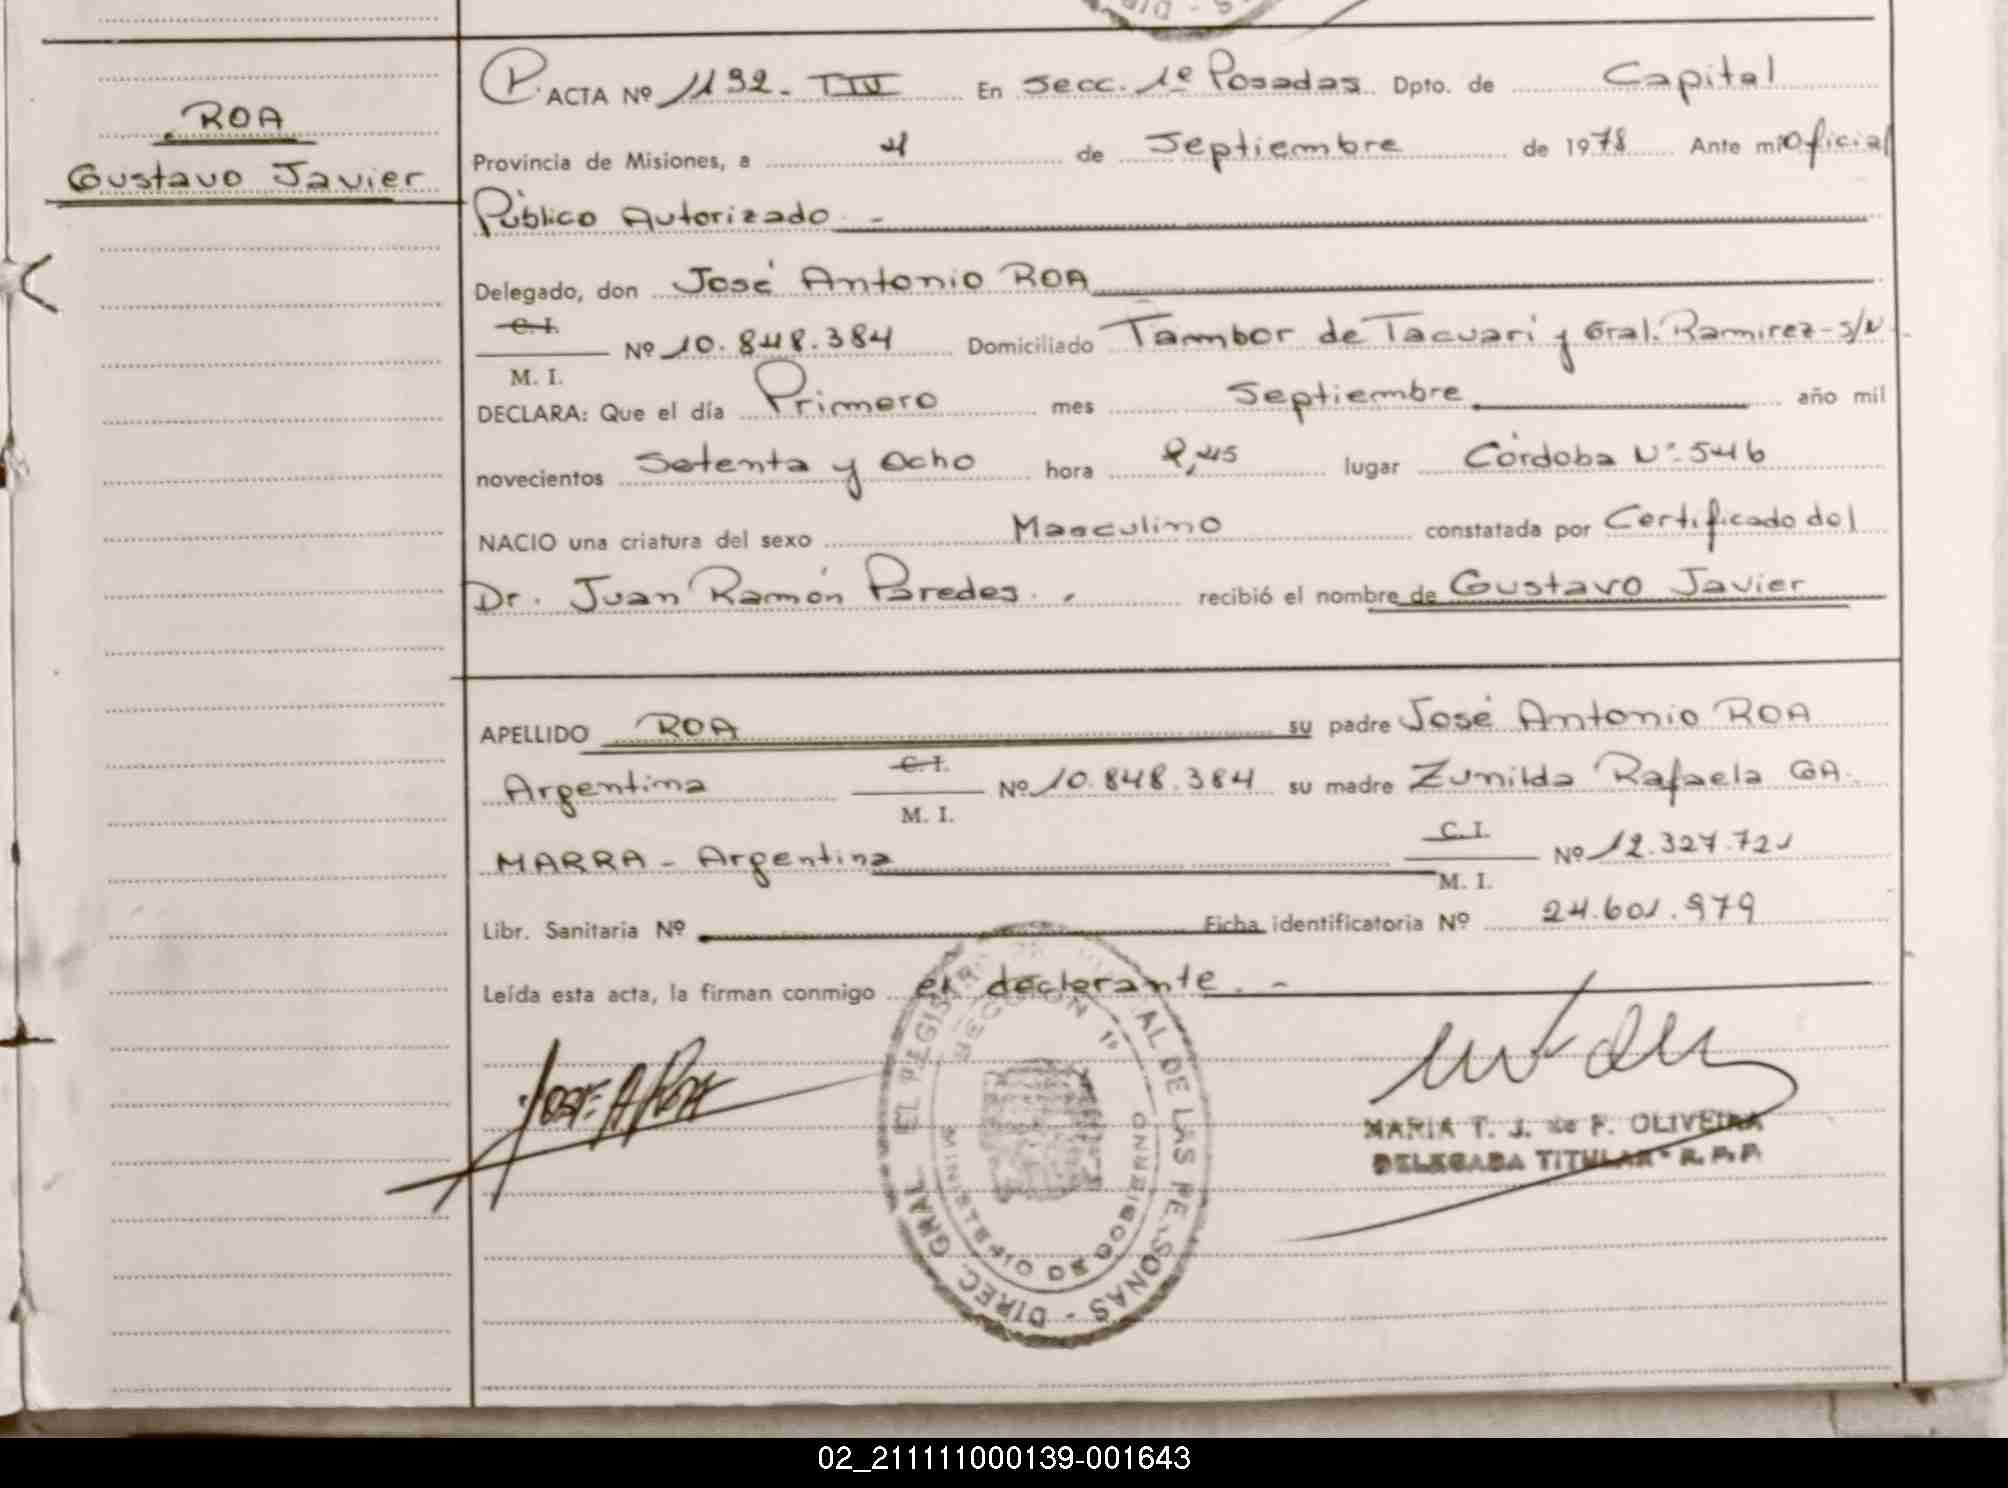 ROA
Gustavo Javier
ACTA Nº 1192 - TIV En Secc. 1º Posadas. Dpto. de Capital
Provincia de Misiones, a 4 de Septiembre de 1978 Ante mi Oficial
Público Autorizado. -
Delegado, don José Antonio ROA
C. I.
M. I. Nº 10.848.384 Domiciliado Tambor de Tacuari y Gral. Ramirez - s/N
DECLARA: Que el día Primero mes Septiembre año mil
novecientos Setenta y Ocho hora lugar Córdoba Nº 546
NACIO una criatura del sexo Masculino constatada por Certificado del
Dr. Juan Ramón Paredes. recibió el nombre de Gustavo Javier
APELLIDO ROA su padre José Antonio ROA
Argentina C. I. M. I. Nº 10.848.384 su madre Zunilda Rafaela GA-
MARRA - Argentina C. I. M. I. Nº 12.327.721
Libr. Sanitaria Nº Ficha identificatoria Nº 24.601.979
Leída esta acta, la firman conmigo el declarante. -
JOSE A ROA
MARIA T. J. de F. OLIVEIRA
DELEGADA TITULAR R. P. P.
DIREC. GRAL. DEL REGISTRO AL DE LAS PERSONAS -
SECCION 1º
MINISTERIO DE GOBIERNO
02_211111000139-001643